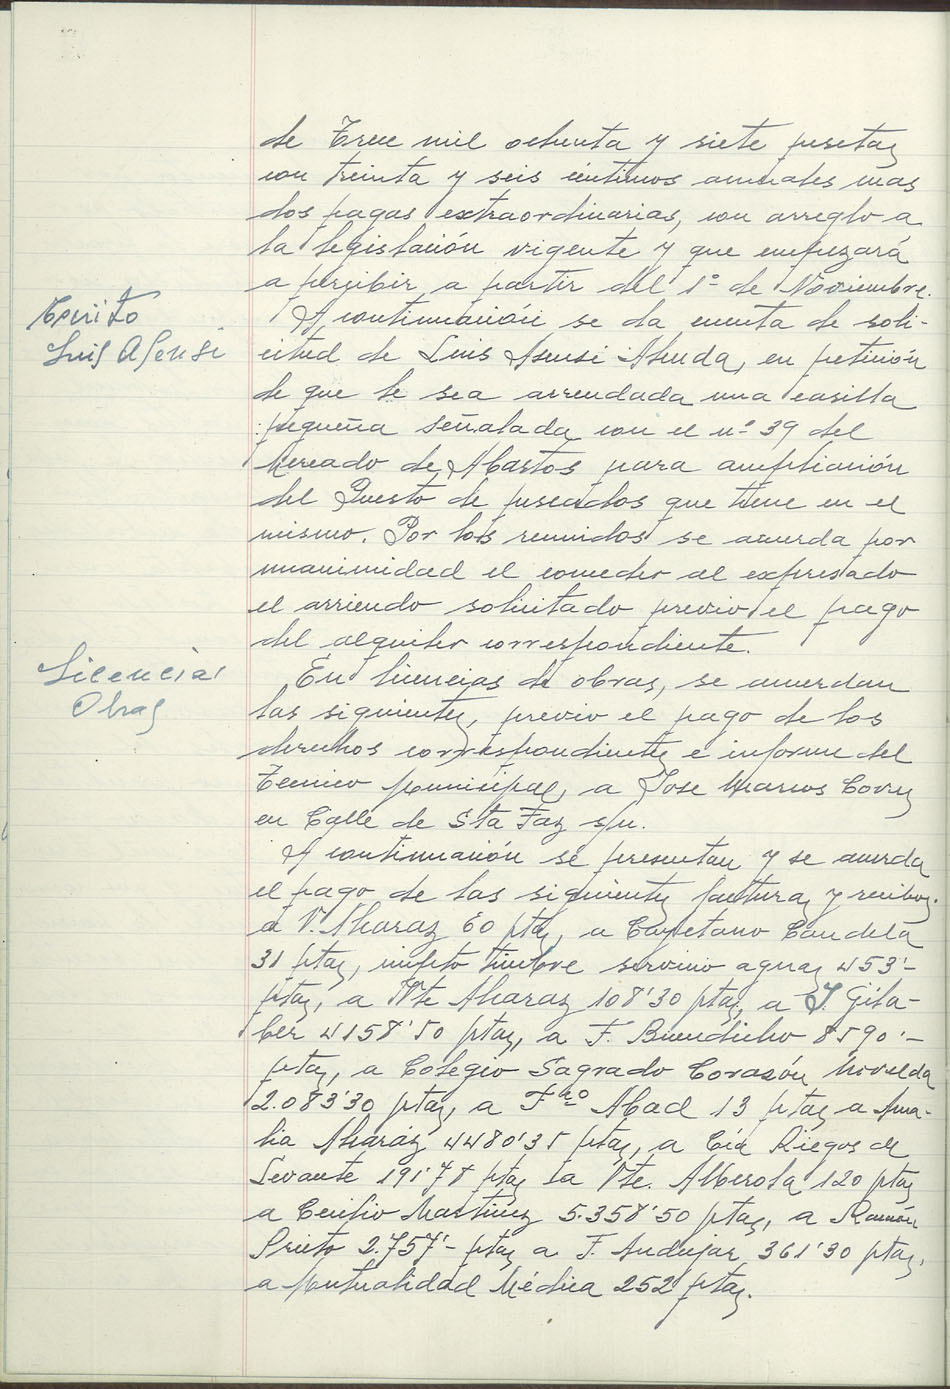 de Trece mil ochenta y siete pesetas
con treinta y seis céntimos anuales mas
dos pagas extraordinarias, con arreglo a
la legislación vigente y que empezará
a percibir a partir del 1º de Noviembre.
Escrito
Luis Asensi
A continuación se da cuenta de soli-
citud de Luis Asensi Almuda, en petición
de que le sea arrendada una casilla
pequeña señalada con el nº 39 del
Mercado de Abastos para ampliación
del Puesto de pescados que tiene en el
mismo. Por los reunidos se acuerda por
unanimidad el conceder al expresado
el arriendo solicitado previo el pago
del alquiler correspondiente.
Licencias
Obras
En licencias de obras, se acuerdan
las siguientes, previo el pago de los
derechos correspondientes e informe del
Tecnico Municipal, a Jose Marcos Coves
en Calle de Sta Faz s/n.
A continuación se presentan y se acuerda
el pago de las siguientes facturas y recibos.
a V. Alcaraz 60 ptas, a Cayetano Candela
31 ptas, impto timbre servicio aguas 453'-
ptas, a Vte Alcaraz 108'30 ptas, a J. Gila-
ber 4158'50 ptas, a F. Buendicho 8590'-
ptas, a Colegio Sagrado Corazón Novelda
2.083'30 ptas, a Fco Abad 13 ptas a Ama-
lia Alcaráz 4480'35 ptas, a Cía Riegos de
Levante 191'78 ptas a Vte. Alberola 120 ptas
a Cecilio Martinez 5.358'50 ptas, a Ramón
Prieto 2.757'- ptas a F. Andujar 361'30 ptas,
a Mutualidad Médica 252 ptas.